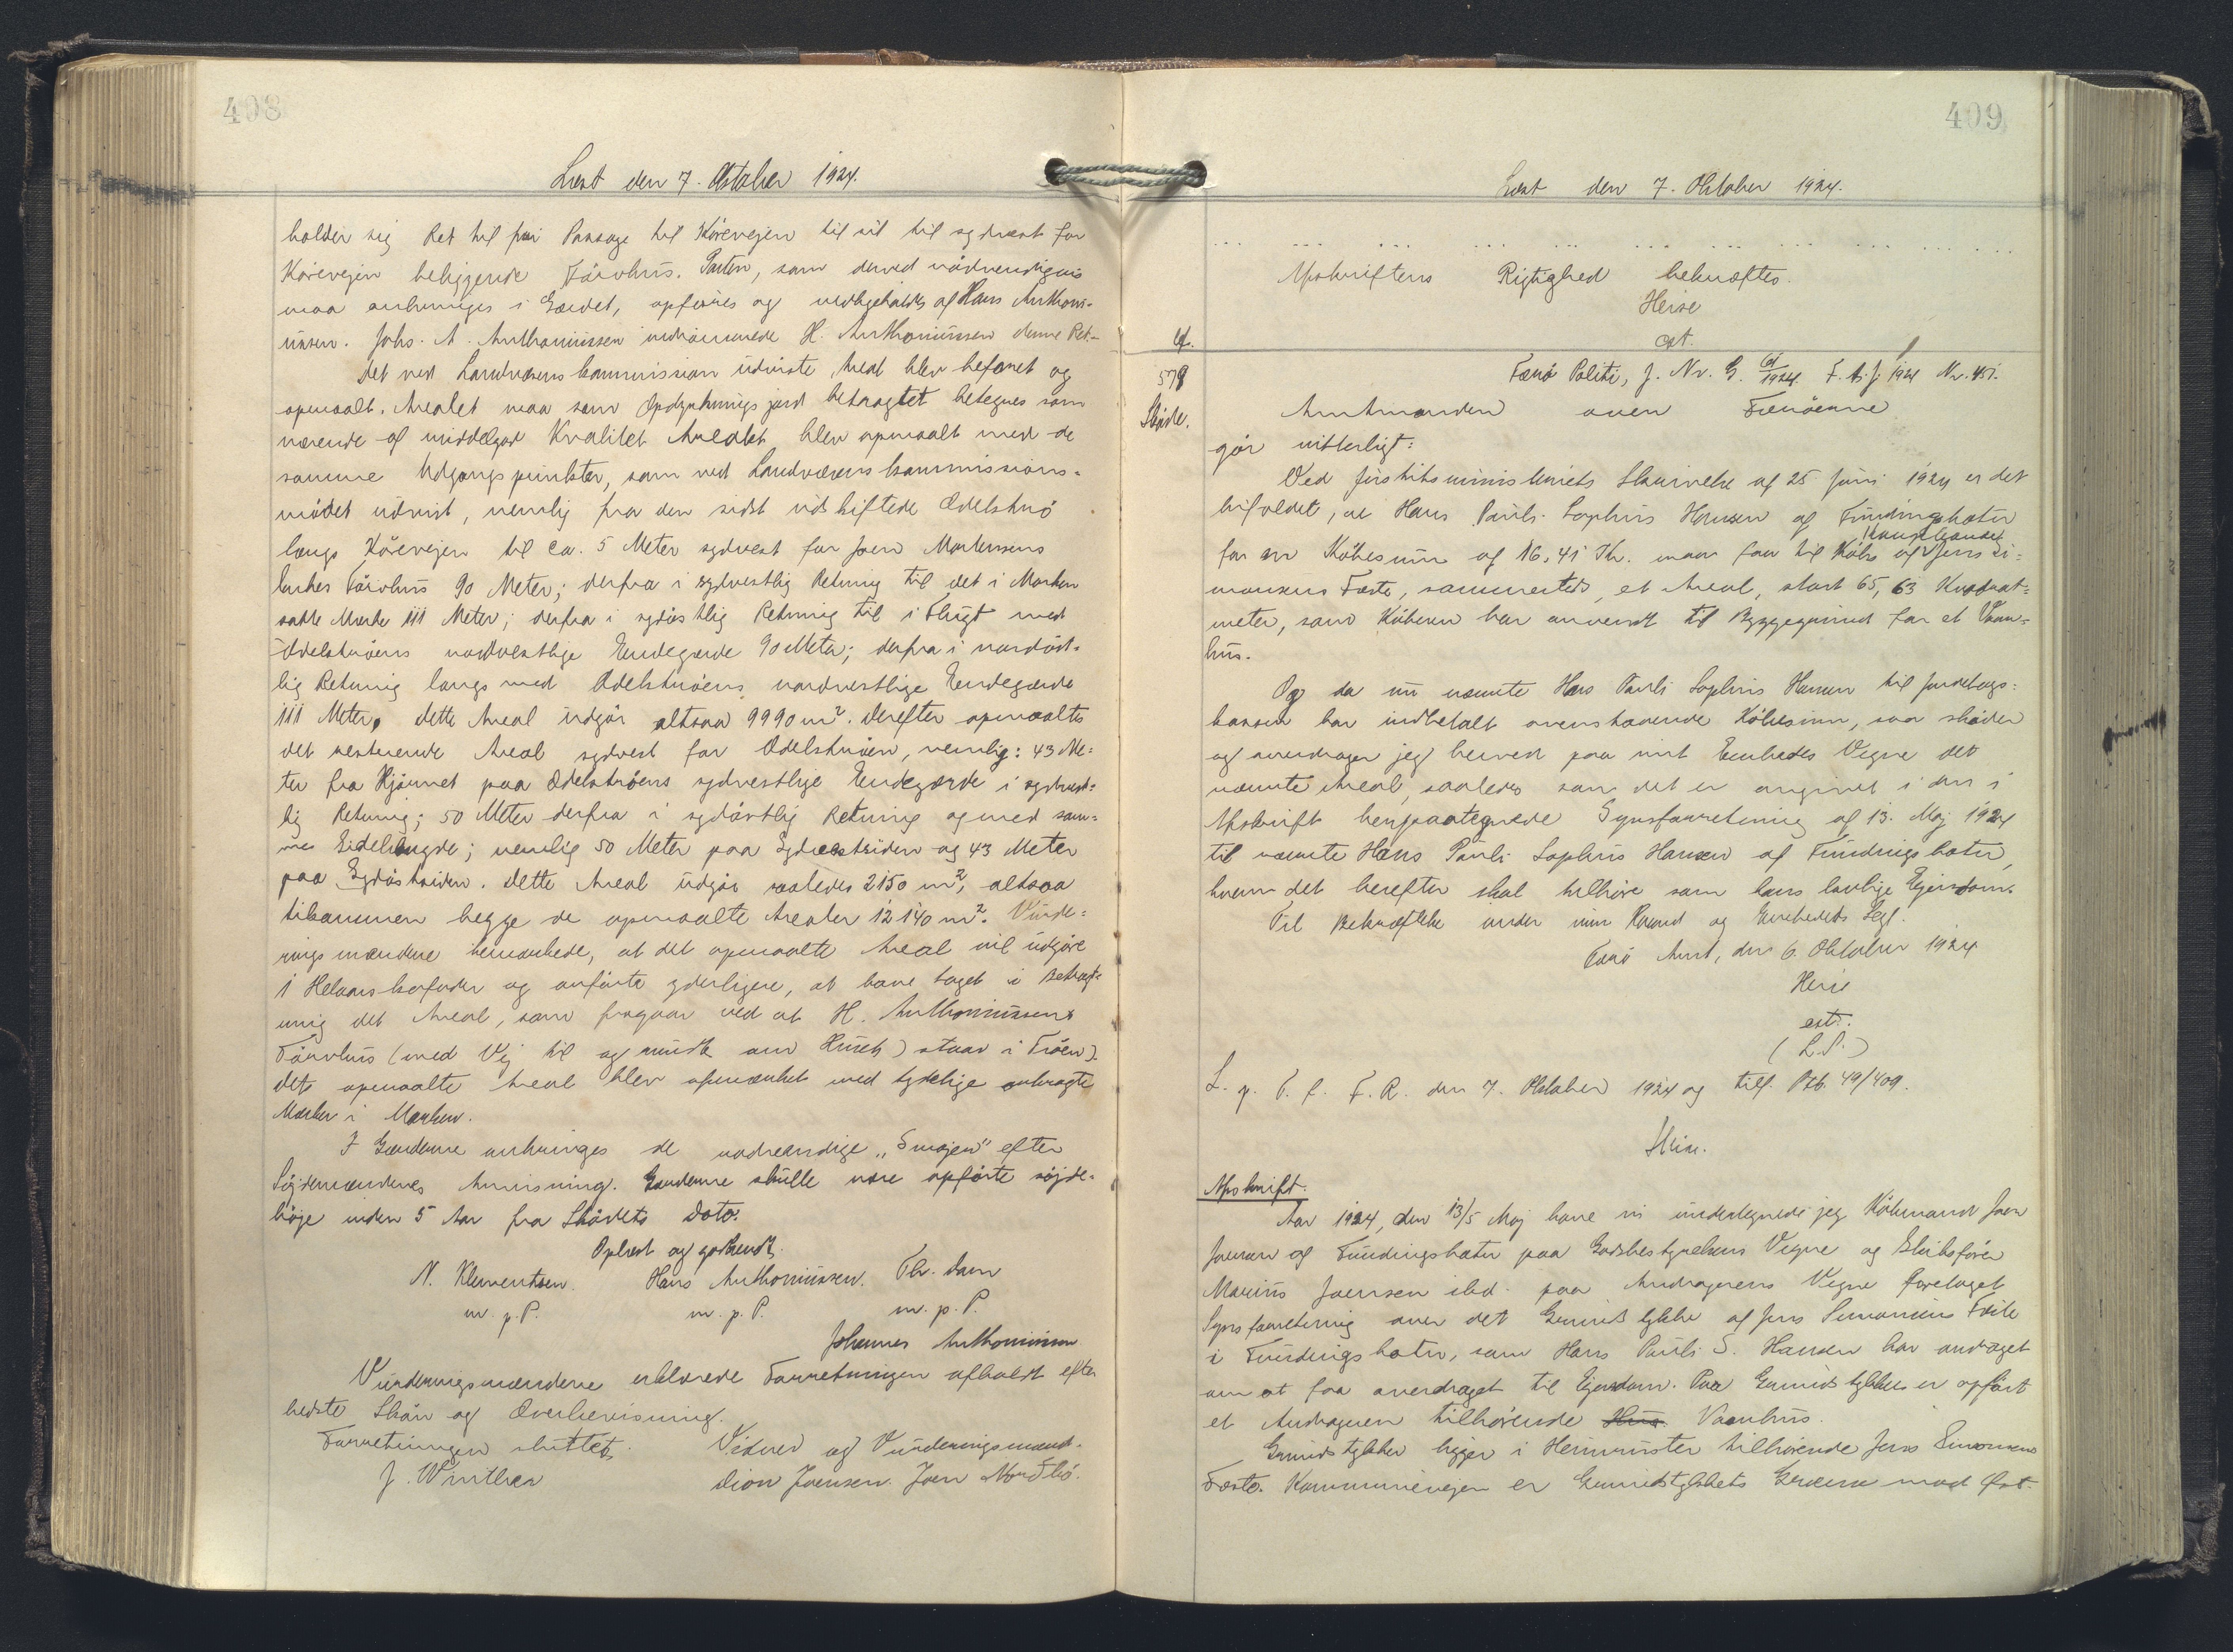 408
Læst den 7. Oktober 1924.
holder sig Ret til fri Passage til Körevejen til sit til sydvest for
Körevejen beliggende Törvhus. Porten, som derved nödvendigvis
maa anbringes i Gærdet, opföres og vedligeholdes af Hans Anthoni-
ussen. Johs. A. Anthoniussen indrömmede H. Anthoniussen denne Ret.-
Det ved Landvæsenskommission udviste Areal blev befaret og
opmaalt. Arealet maa som Opdyrkningsjord betragtet betegnes som
værende af middelgod Kvalitet Arealet blev opmaalt med de
samme Udgangspunkter, som ved Landvæsenskommissions-
mödet udvist, nemlig fra den sidst udskiftede Odelströ
langs Körevejen til ca. 5 Meter sydvest for Joen Mortensens
Enkes Törvhus 90 Meter; derfra i sydvestlig Retning til det i Marken
satte Mærke 111 Meter; derfra i sydöstlig Retning til i Flugt med
Odelströens nordvestlige Endegærde 90 Meter; derfra i nordöst-
lig Retning langs med Odelströens nordvestlige Endegærde
111 Meter, dette Areal udgör altsaa 9990 m². Derefter opmaaltes
det resterende Areal sydvest for Odelströen, nemlig: 43 Me-
ter fra Hjörnet paa Odelströens sydvestlige Endegærde i sydvest-
lig Retning; 50 Meter derfra i sydöstlig Retning og med sam-
me Sidelængde; nemlig 50 Meter paa Sydvestsiden og 43 Meter
paa Sydöstsiden. Dette Areal udgör saaledes 2150 m², altsaa
tilsammen begge de opmaalte Arealer 12140 m². Vurde-
ringsmændene bemærkede, at det opmaalte Areal vil udgöre
1 Helaarskofoder og anförte yderligere, at have taget i Betragt-
ning det Areal, som fragaar ved at H. Anthoniussens
Törvhus (med Vej til og rundt om Huset) staar i Tröen).
Det opmaalte Areal blev afmærket med tydelige anbragte
Mærker i Marken.
I Gærderne anbringes de nödvendige "Smojen" efter
Söjdemændenes Anvisning. Gærderne skulle være opförte söjde-
höje inden 5 Aar fra Sködets Dato.
Oplæst og godkendt.
N. Klementsen. Hans Anthoniussen. Th. Dam
m. p. P. m. p. P. m. p. P.
Johannes Anthoniussen
Vurderingsmændene erklærede Forretningen afholdt efter
bedste Skön og Overbevisning.
Forretningen sluttet. Vidner og Vurderingsmænd.
J. Winther Dion Joensen. Joen
409
Læst den 7. Oktober 1924.
... ... ... ... ... ... ... ... ... ... ...
Afskriftens Rigtighed bekræftes.
Heise
cst.
578
Færö Politi, J. Nr. G. 1924. F. A. J. 1924 Nr. 451.
Sköde.
Amtmanden over Færöerne
gör vitterligt:
Ved Justitsministeriets Skrivelse af 25 Juni 1924 er det
bifaldet, at Hans Pauli Sophus Hansen af Fundingsbotn
for en Köbesum af 16,41 Kr. maa faa til Köbs af Jens Si-
monsens Fæste, sammesteds, et Areal, stort 65,63 Kvadrat-
meter, som Köberen har anvendt til Byggegrund for et Vaan-
hus.
Og da nu nævnte Hans Pauli Sophus Hansen til Jordebogs-
kassen har indbetalt ovenstaaende Köbesum, saa sköder
og overdrager jeg herved paa mit Embedes Vegne det
nævnte Areal, saaledes som det er angivet i den i
Afskrift henpaategnede Synsforretning af 13. Maj 1924
til nævnte Hans Pauli Sophus Hansen af Fundingsbotn,
hvem det herefter skal tilhöre som hans lovlige Ejendom.
Til Bekræftelse under min Haand og Embedets Segl.
Færö Amt, den 6. Oktober 1924
Heise
cst.
(L. S.)
L. p. T. f. F. R. den 7. Oktober 1924 og tilf. Ptb. 49/409.
Heise.
Afskrift.
Aar 1924, den 13/5 Maj have vi undertegnede jeg Köbmand Joen
Joensen af Fundingsbotn paa Godsbestyrelsens Vegne og Skibsförer
Marius Joensen ibd. paa Andragerens Vegne foretaget
Synsforretning over det Grundstykke af Jens Simonsens Fæste
i Fundingsbotn, som Hans Pauli S. Hansen har andraget
om at faa overdraget til Ejendom. Paa Grundstykket er opfört
et Andrageren tilhörende Hus Vaanhus.
Grundstykket ligger i Heimrúster tilhörende Jens Simonsens
Fæste. Kommunevejen er Grundstykkets Grænse mod Öst-